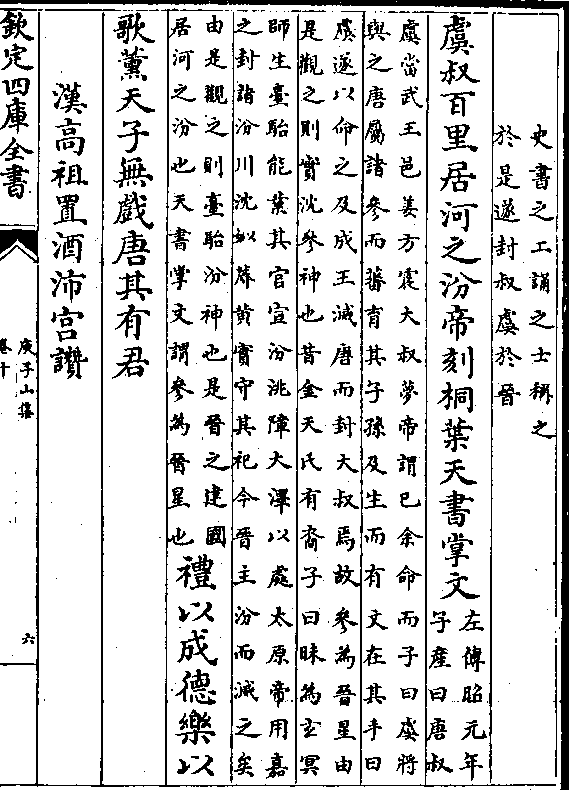 史書之工誦之士稱之
於是遂封叔虞於晉
虞叔百里居河之汾帝刻桐葉天書掌文
左傳昭元年
子產曰唐叔
虞當武王邑姜方震大叔夢帝謂已余命而子曰虞將
與之唐屬諸參而蕃育其子孫及生而有文在其手曰
虞遂以命之及成王滅唐而封大叔焉故參為晉星由
是觀之則實沈參神也昔金天氏有裔子曰昧為玄冥
師生臺駘能業其官宣汾洮障大澤以處太原帝用嘉
之封諸汾川沈姒蓐黃實守其祀今晉主汾而滅之矣
由是觀之則臺駘汾神也是晉之建國
居河之汾也天書掌文謂參為晉星也
禮以成德樂以
歌薰天子無戲唐其有君
漢高祖置酒沛宮讚
欽定四庫全書
庾子山集
卷十
六